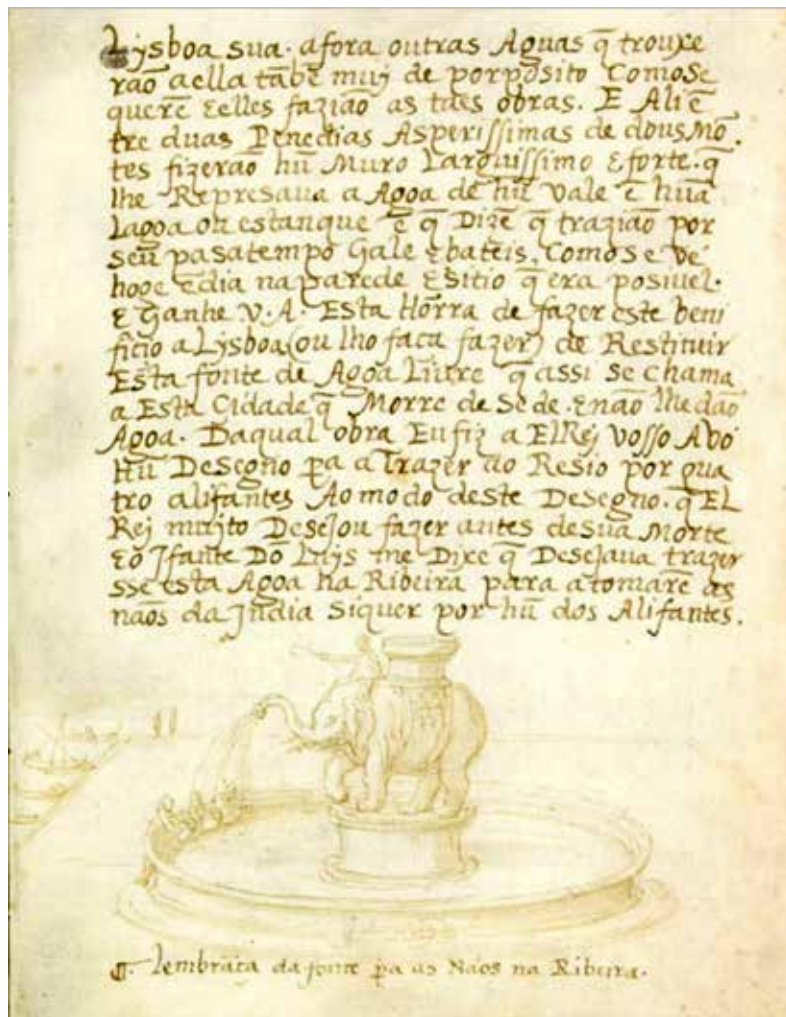 Lysboa sua. afora outras Aguas q̃ trouxe
rão a ella tãbẽ muj de porposito Como Se
querẽ & elles fazião as taes obras. E Ali ẽ
tre duas Penedias Asperissimas de dous Mõ
tes fizerão hũ Muro Larguissimo & forte. q̃
lhe Represaua a Agoa de hũ vale ẽ hũa
Lagoa ou estanque ẽ q̃ Dizẽ q̃ trazião por
seu pasatempo Gale & bateis. Como s e vé
hoge ẽ dia na parede & sitio q̃ era posiuel.
& Ganhe V. A. Esta Hõrra de fazer este beni
ficio a Lysboa (ou lho faça fazer) de Restituir
Esta fonte de Agoa Liure q̃ assi se chama
a Esta Cidade q̃ Morre de Sede. & não lhe dão
Agoa. Da qual obra Eu fiz a ElRej vosso Avo
Hũ Desegno pa a Trazer ao Resio por qua
tro alifantes Ao modo deste Desegno. q̃ EL
Rej mujto Desejou fazer antes de sua Morte
& o Jfante Dõ Luys me Dixe q̃ Desejaua trazer
sse esta Agoa na Ribeira para a tomarẽ as
nãos da Jndia siquer por hũ dos Alifantes.
¶. lembrãça da fonte pa as Nãos na Ribeira.